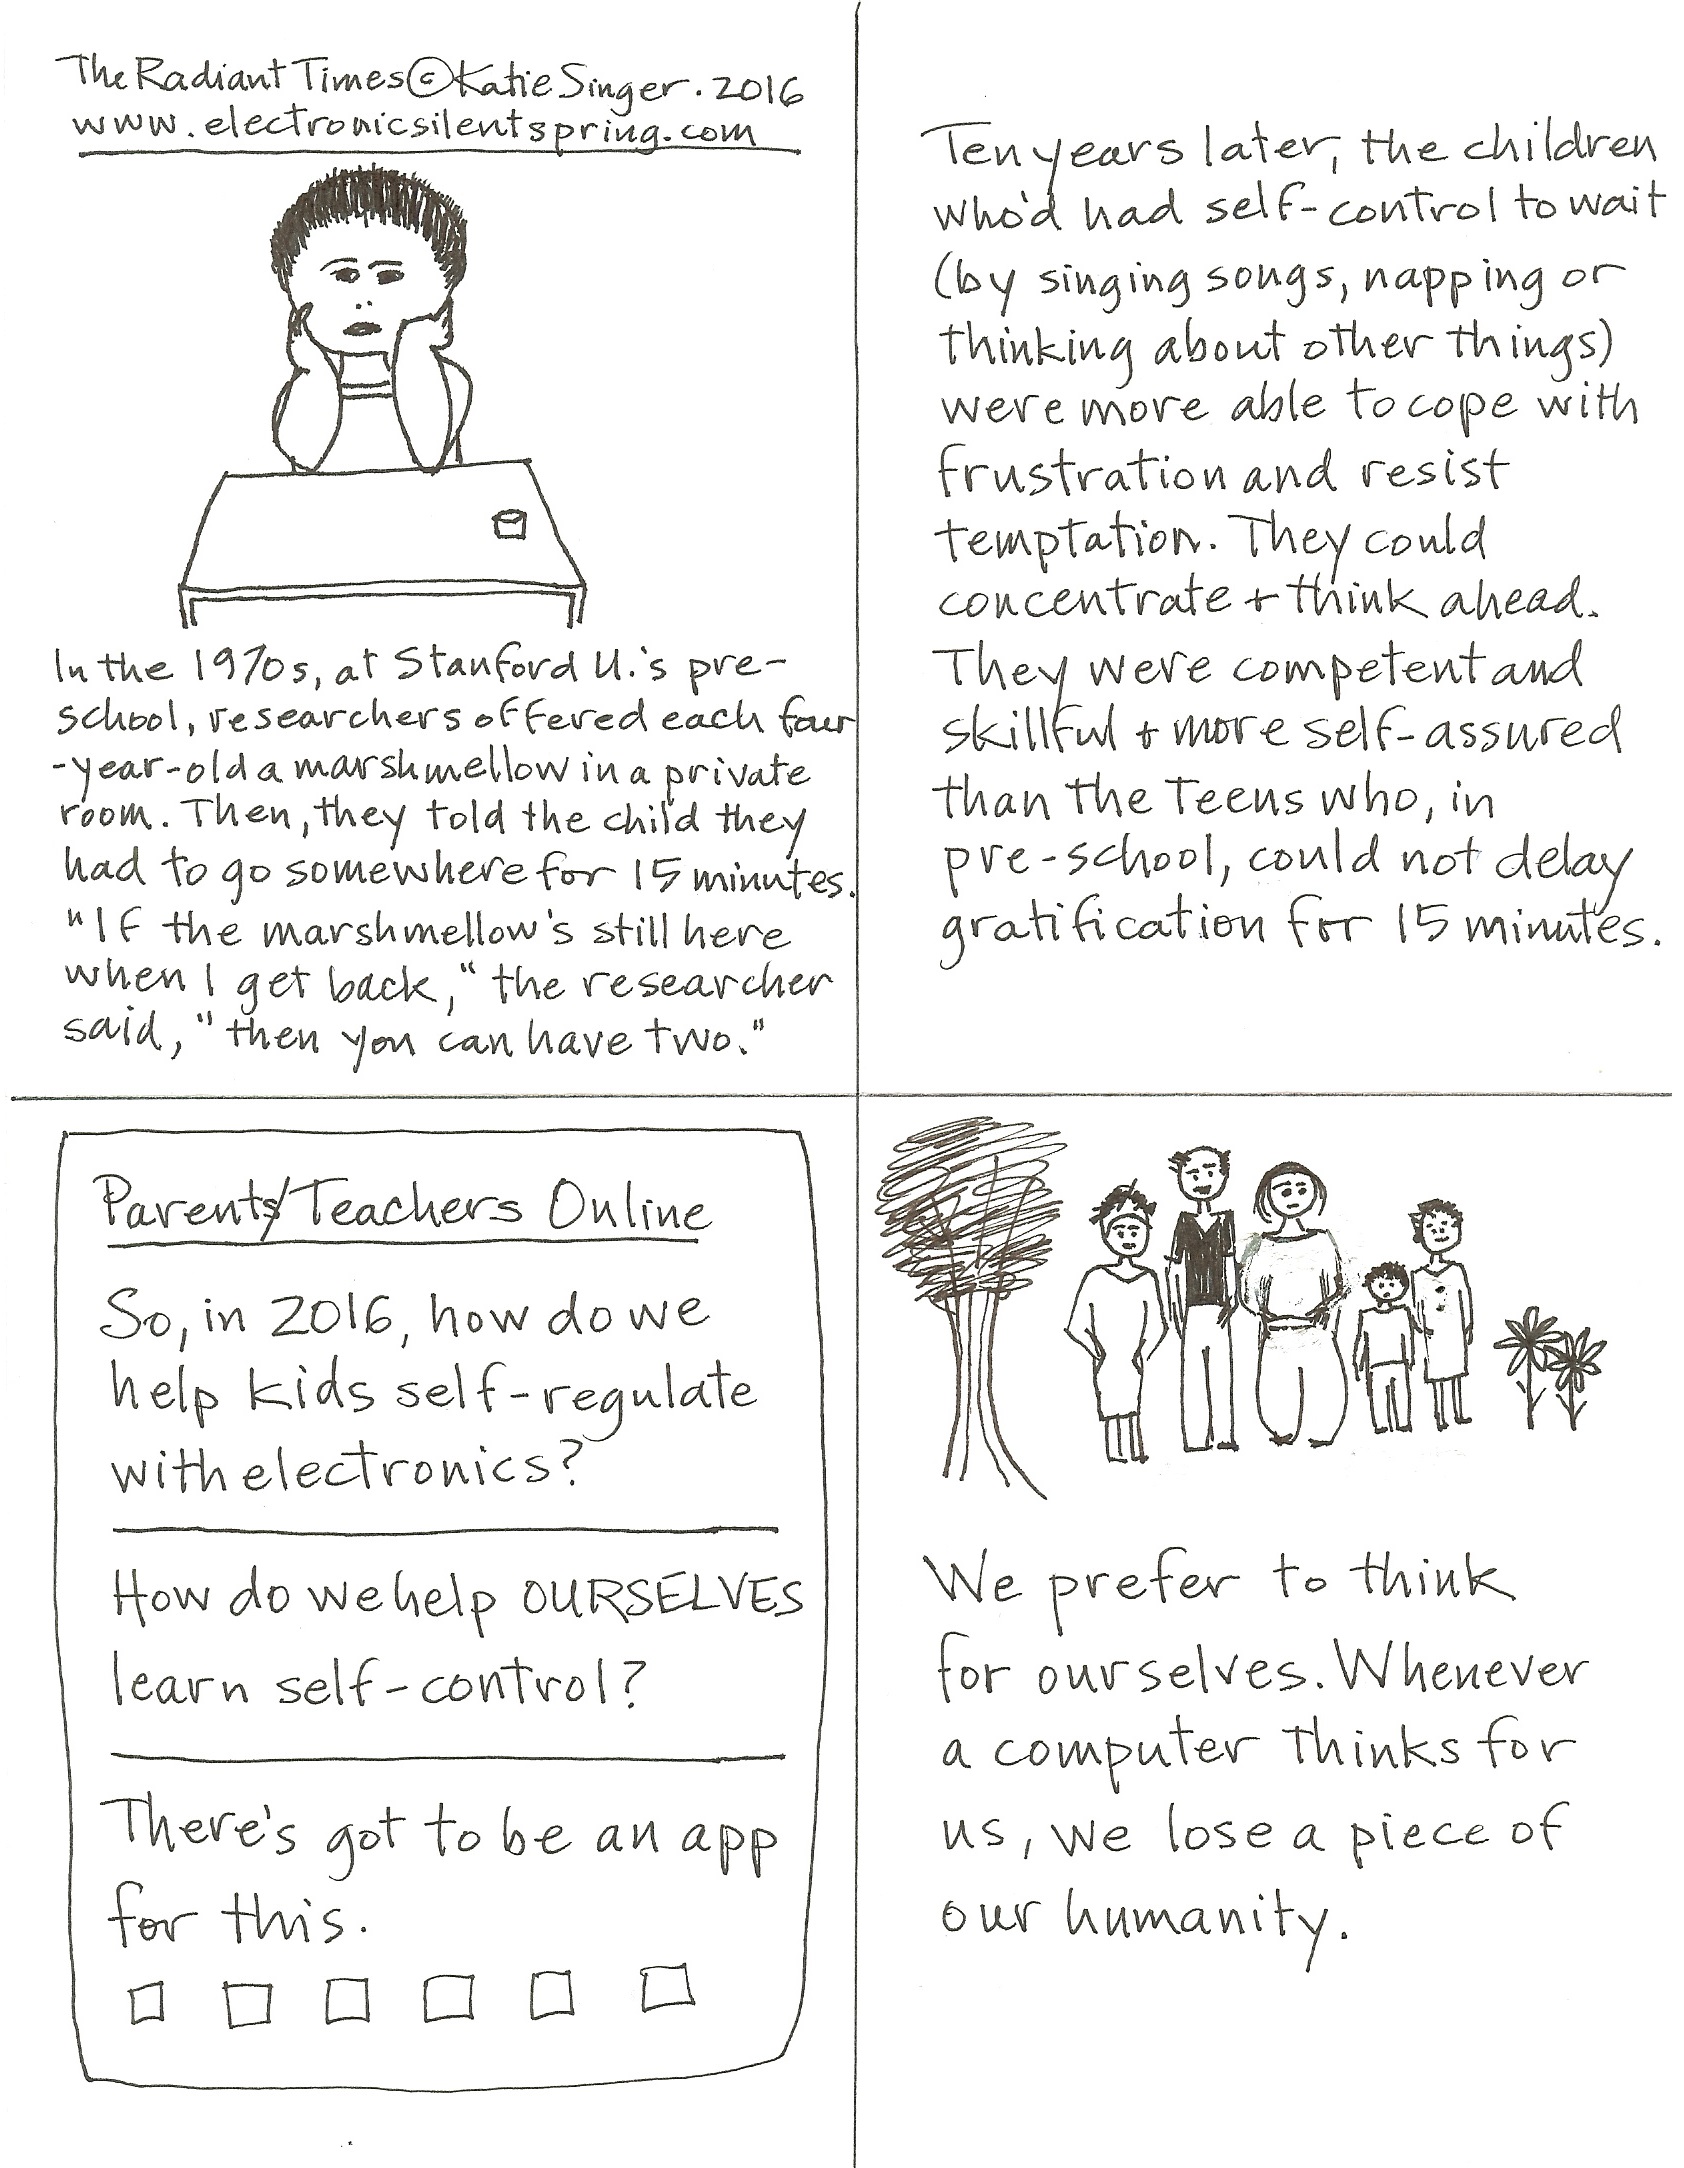 The Radiant Times © Katie Singer. 2016
www.electronicsilentspring.com
In the 1970s, at Stanford U.'s pre-
school, researchers offered each four
-year-old a marshmellow in a private
room. Then, they told the child they
had to go somewhere for 15 minutes.
"If the marshmellow's still here
when I get back," the researcher
said, "then you can have two."
Ten years later, the children
who'd had self-control to wait
(by singing songs, napping or
thinking about other things)
were more able to cope with
frustration and resist
temptation. They could
concentrate + think ahead.
They were competent and
skillful + more self-assured
than the teens who, in
pre-school, could not delay
gratification for 15 minutes.
Parents/Teachers Online
So, in 2016, how do we
help kids self-regulate
with electronics?
How do we help OURSELVES
learn self-control?
There's got to be an app
for this.
We prefer to think
for ourselves. Whenever
a computer thinks for
us, we lose a piece of
our humanity.